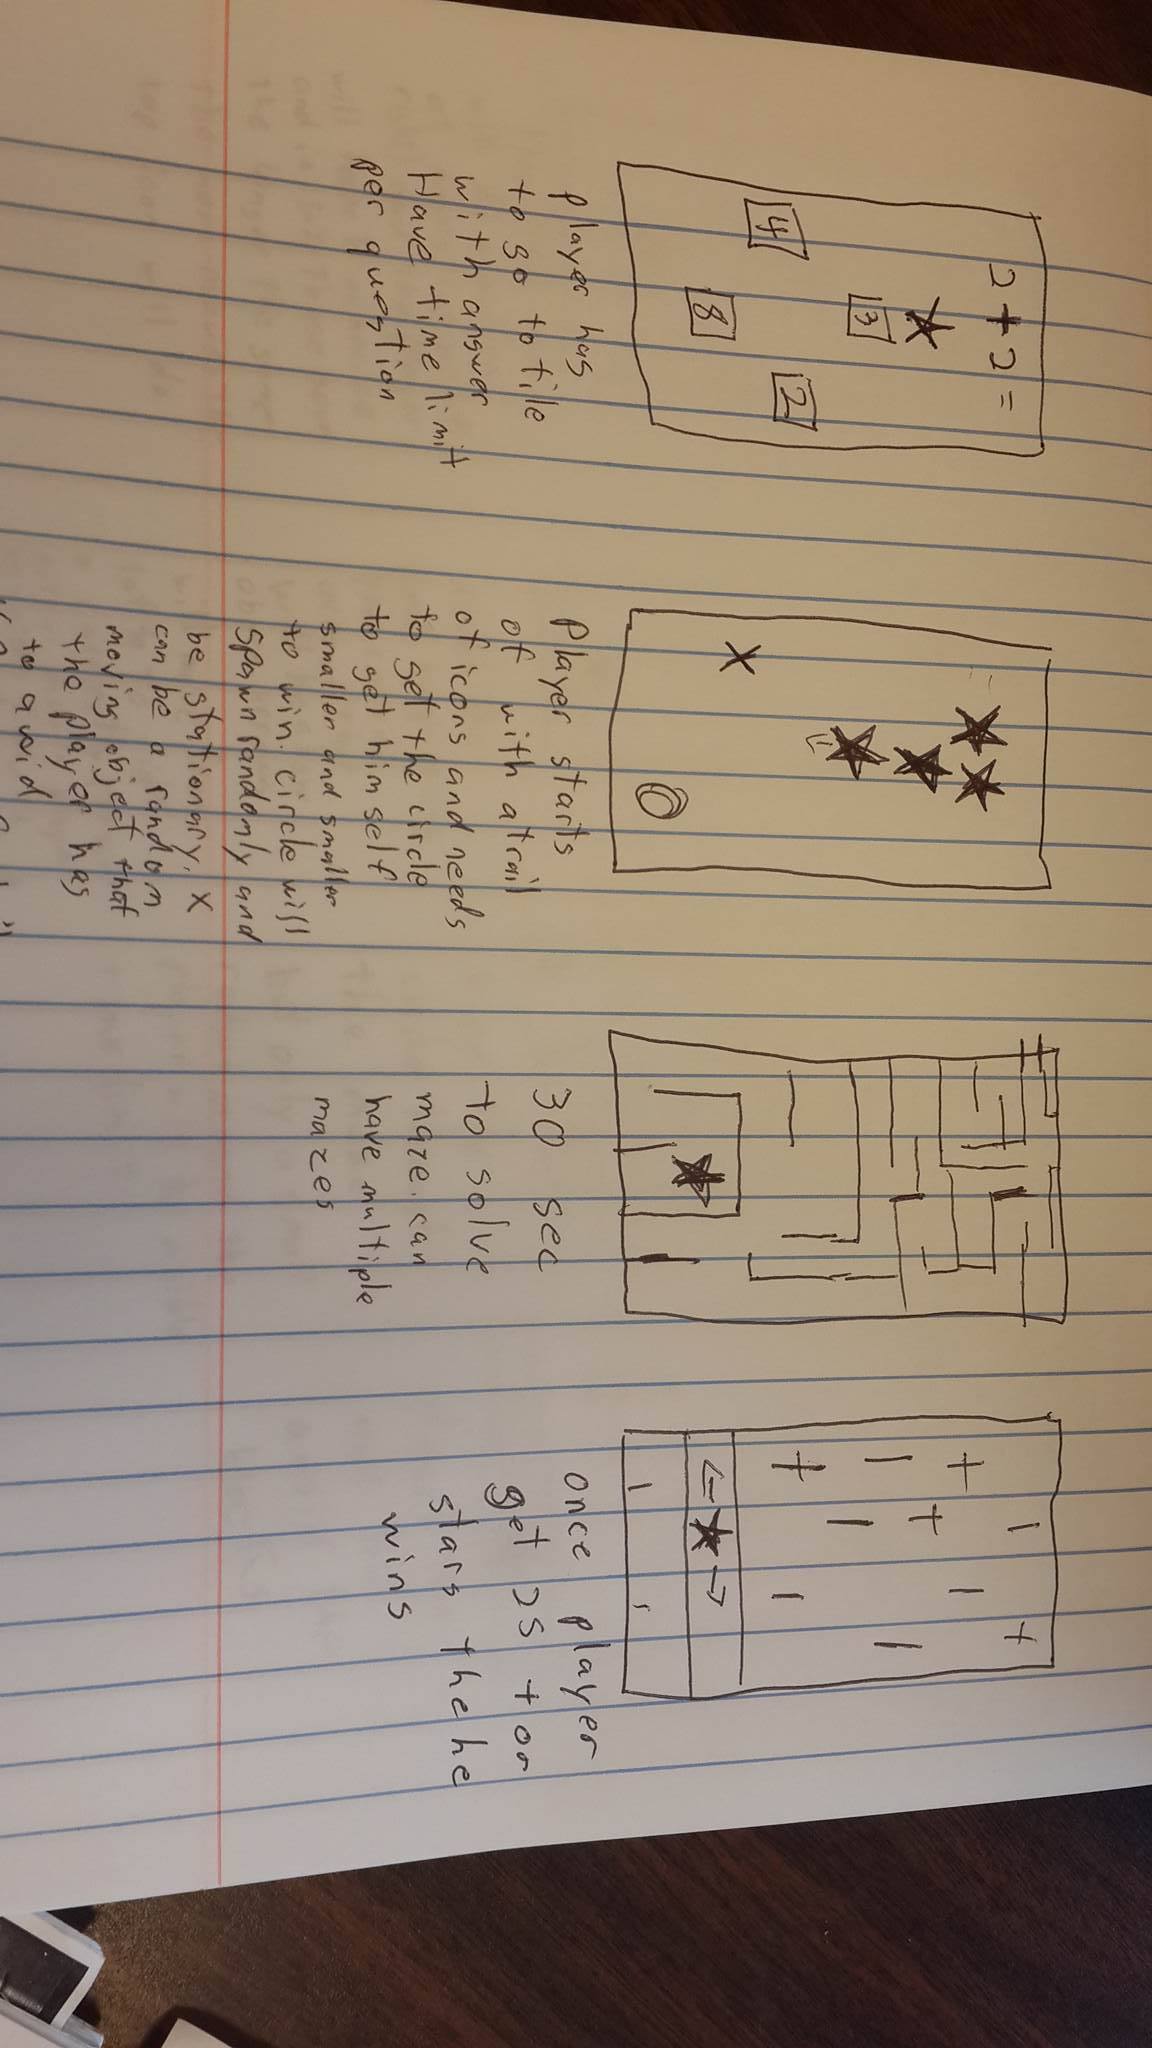 2+2=
3
4
2
8
player has
to go to tile
with answer
Have time limit
per question
X
Player starts
of with a trail
of icons and needs
to get the circle
to get him self
smaller and smaller
to win. circle will
spawn randomly and
be stationary. X
can be a random
moving object that
the player has
to avoid
30 sec
to solve
maze. can
have multiple
mazes
+ - - +
- +
+ - - -
← →
once player
get 25 + or
stars the he
wins